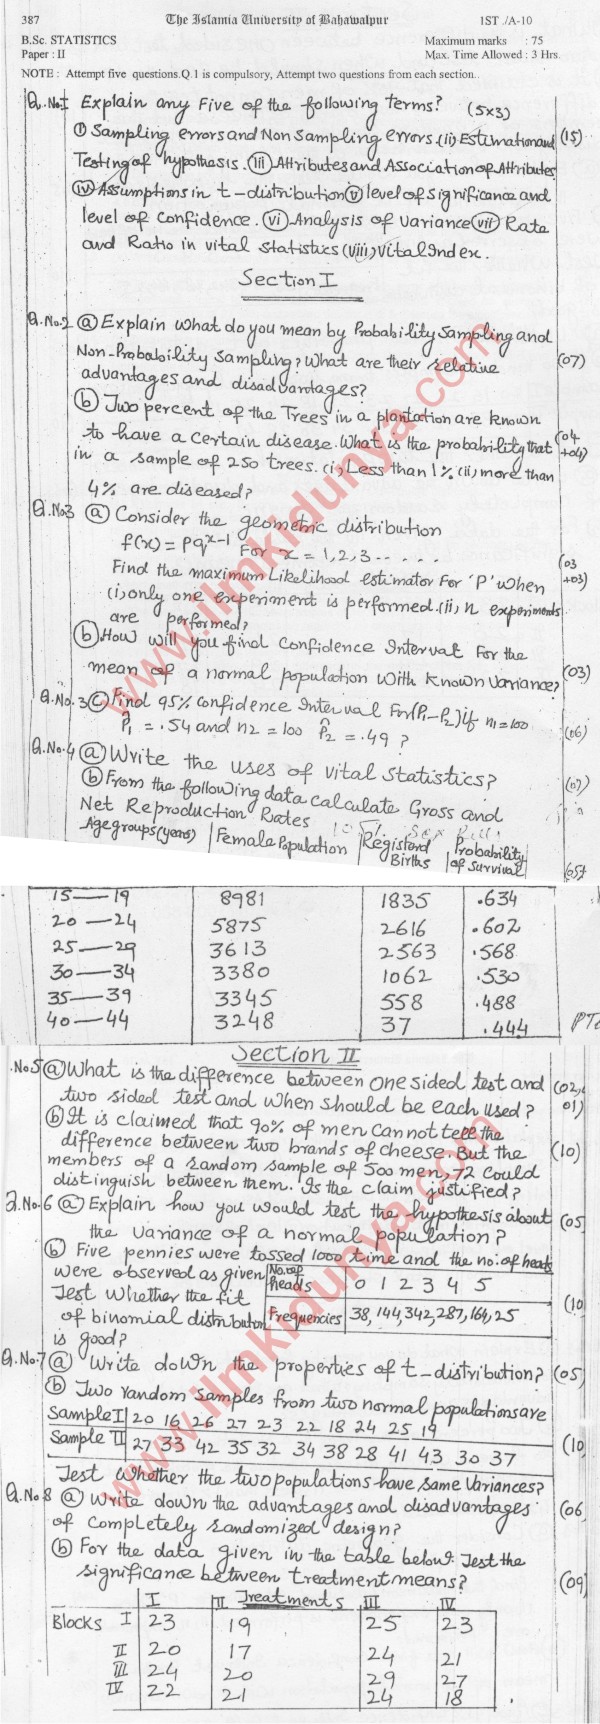 387 The Islamia University of Bahawalpur 1ST /A-10
B.Sc. STATISTICS Maximum marks : 75
Paper : II Max. Time Allowed : 3 Hrs.
NOTE : Attempt five questions.Q.1 is compulsory, Attempt two questions from each section..
Q.No.I Explain any Five of the following terms? (5x3)
(i) Sampling errors and Non Sampling errors (ii) Estimation and (15)
Testing of hypothesis. (iii) Attributes and Association of Attributes
(iv) Assumptions in t-distribution (v) level of significance and
level of confidence. (vi) Analysis of Variance (vii) Rate
and Ratio in vital statistics (viii) Vital Index.
Section I
Q.No.2 (a) Explain what do you mean by Probability Sampling and
Non-Probability Sampling? What are their relative (07)
advantages and disadvantages?
(b) Two percent of the Trees in a plantation are known
to have a certain disease. What is the probability that (04
in a sample of 250 trees. (i) Less than 1% (ii) more than +04)
4% are diseased?
Q.No3 (a) Consider the geometric distribution
f(x) = pq^x-1 For x = 1,2,3 . . . . .
Find the maximum Likelihood estimator For 'P' when (03
(i) only one experiment is performed. (ii) n experiments +03)
are performed?
(b) How will you find Confidence Interval For the
mean of a normal population with known variance? (03)
Q.No.3 (c) Find 95% confidence Interval For (P1-P2) if n1=100
P̂1 = .54 and n2 = 100 P̂2 = .49 ? (06)
Q.No.4 (a) Write the uses of vital statistics? (07)
(b) From the following data calculate Gross and
Net Reproduction Rates
Age groups (years) Female Population Registerd Births Probability of Survival (05+
15—19 8981 1835 .634
20—24 5875 2616 .602
25—29 3613 2563 .568
30—34 3380 1062 .530
35—39 3345 558 .488
40—44 3248 37 .444 PTO
Section II
.No5 (a) What is the difference between one sided test and (02,
two sided test and when should be each used? 01)
(b) It is claimed that 90% of men cannot tell the
difference between two brands of cheese. But the (10)
members of a random sample of 500 men, 72 could
distinguish between them. Is the claim justified?
Q.No.6 (a) Explain how you would test the hypothesis about (05
the variance of a normal population?
(b) Five pennies were tossed 1000 time and the no: of heads
were observed as given No. of heads 0 1 2 3 4 5
Test whether the fit (10
of binomial distribution Frequencies 38, 144, 342, 287, 164, 25
is good?
Q.No.7 (a) Write down the properties of t-distribution? (05)
(b) Two random samples from two normal populations are
Sample I 20 16 26 27 23 22 18 24 25 19
Sample II 27 33 42 35 32 34 38 28 41 43 30 37 (10
Test whether the two populations have same Variances?
Q.No 8 (a) Write down the advantages and disadvantages (06
of completely randomized design?
(b) For the data given in the table below. Test the
significance between treatment means? (09)
Treatments
I II III IV
Blocks I 23 19 25 23
II 20 17 24 21
III 24 20 29 27
IV 22 21 24 18
www.ilmkidunya.com
www.ilmkidunya.com